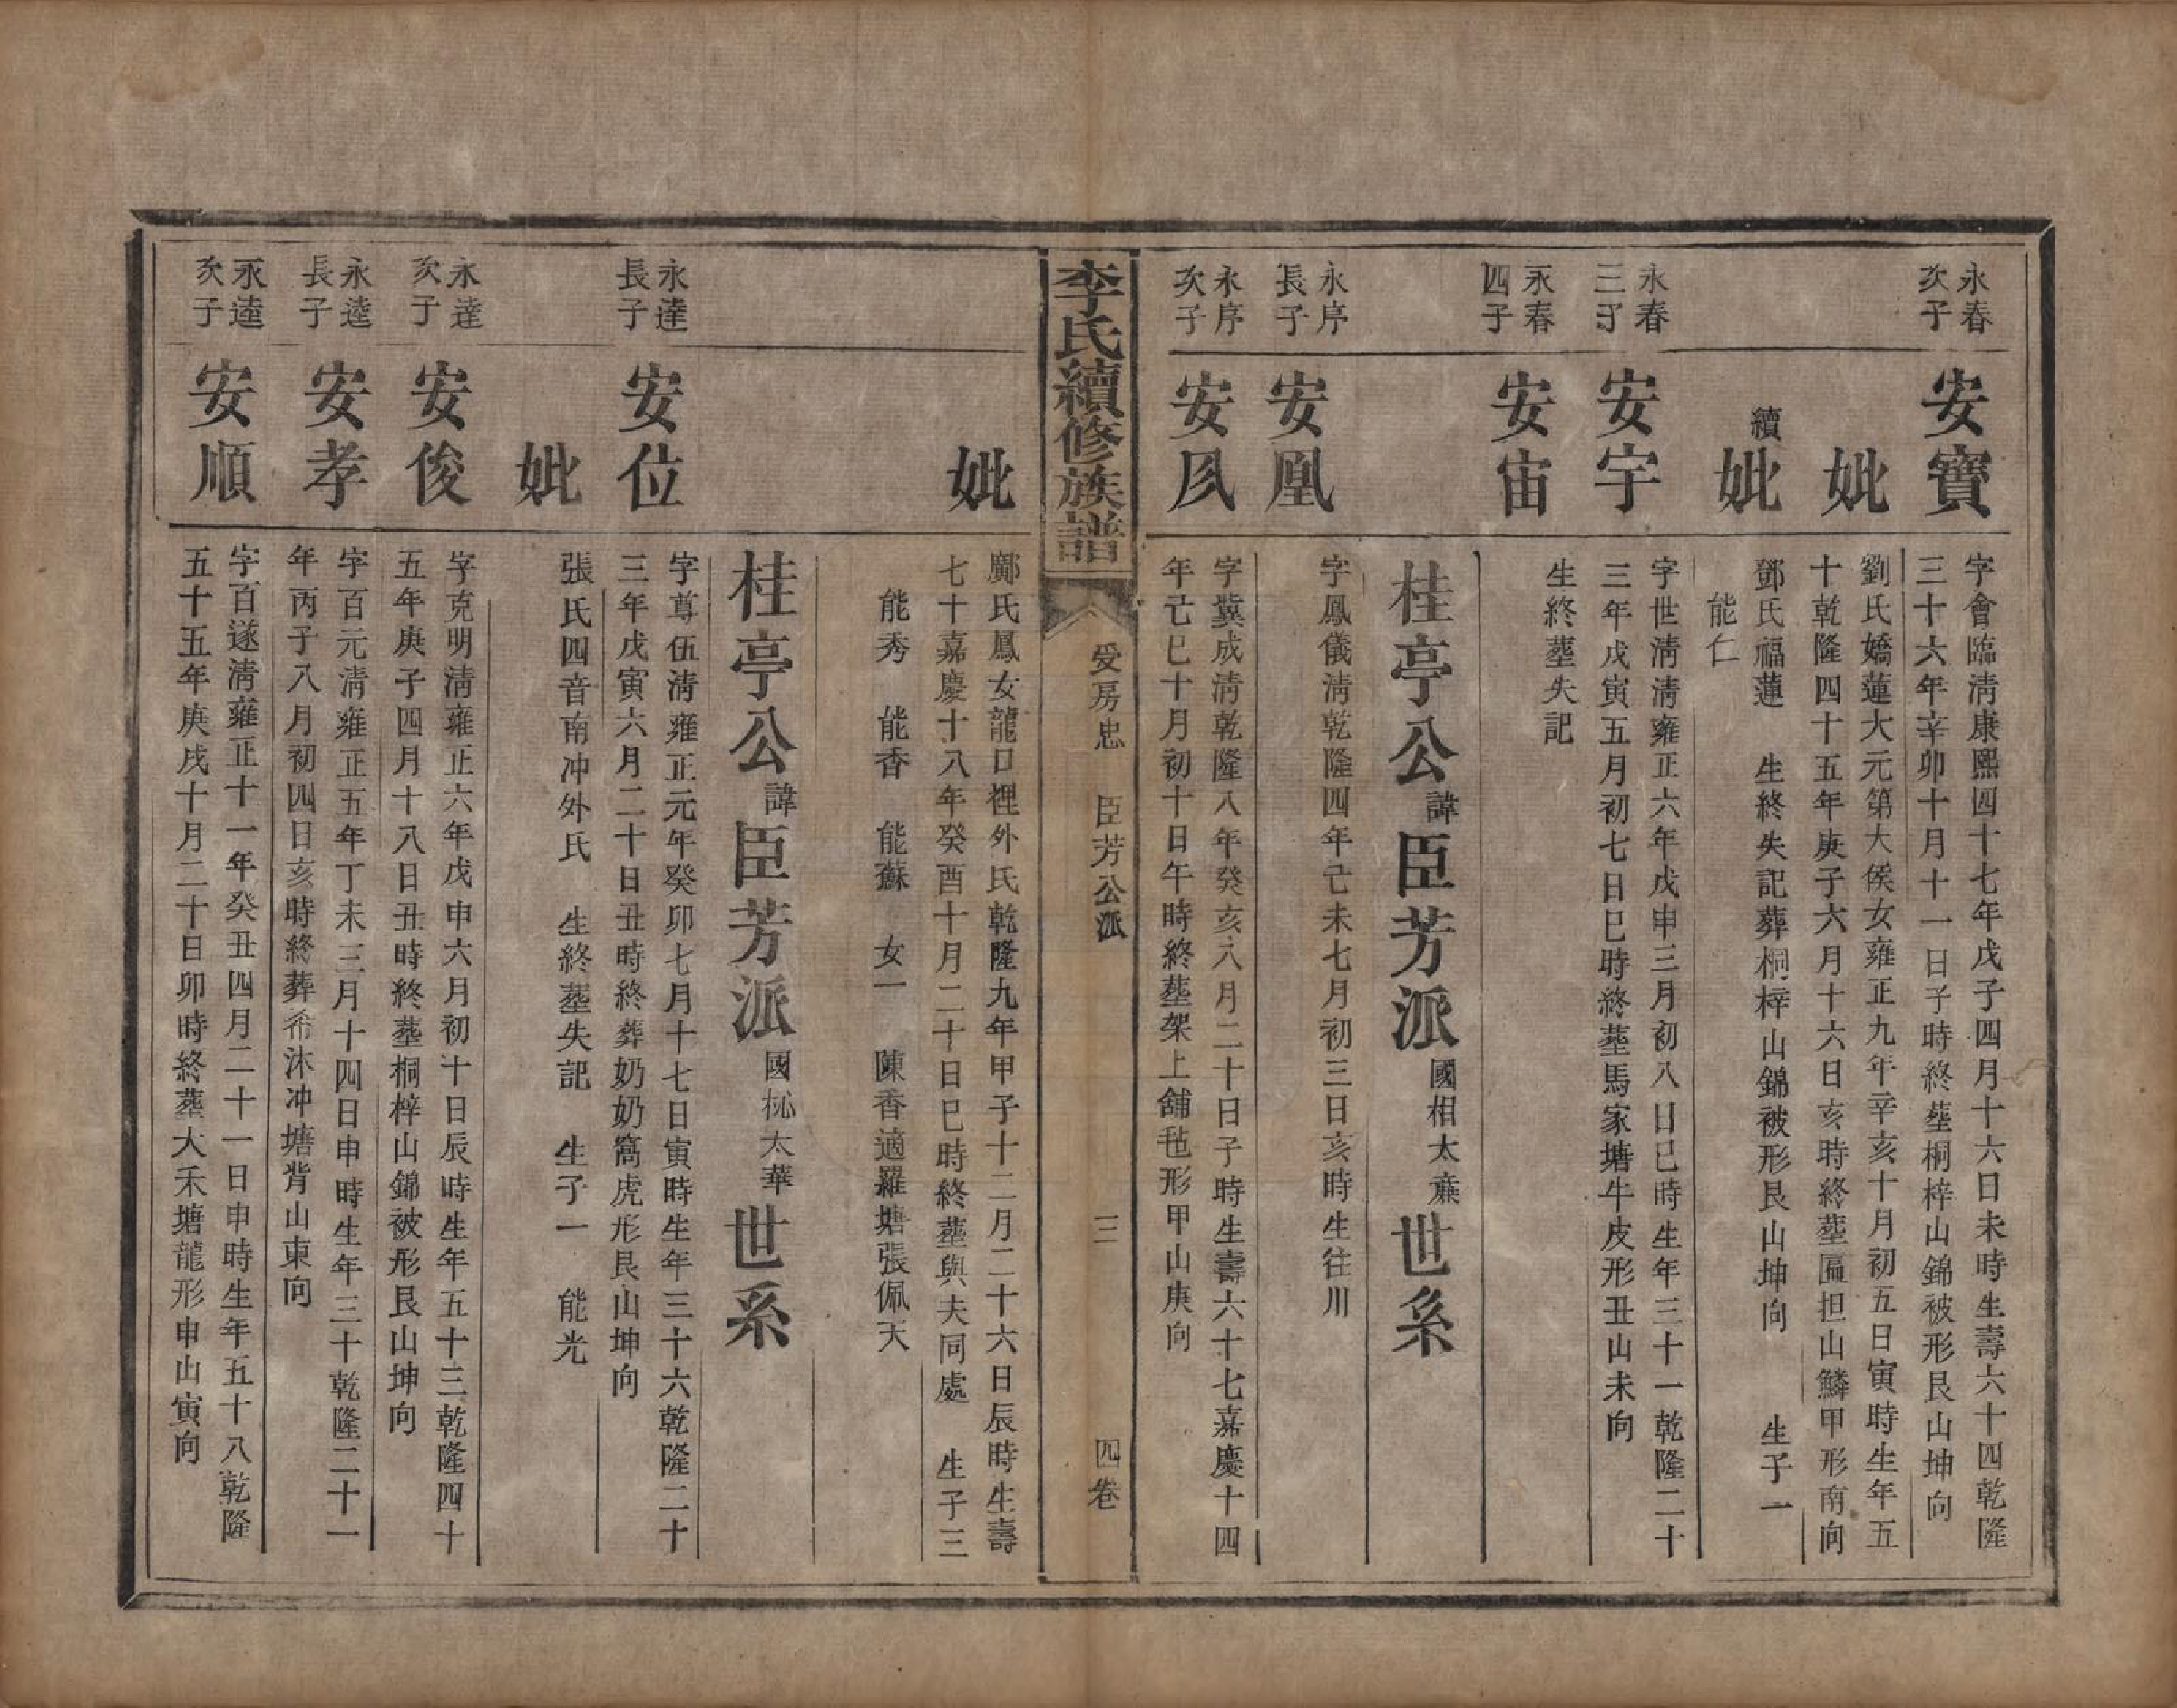 永春
次子
安寶
字會臨淸康熙四十七年戊子四月十六日未時生壽六十四乾隆
三十六年辛卯十月十一日子時終塟桐梓山錦被形艮山坤向
妣
劉氏嬌蓮大元第大候女雍正九年辛亥十月初五日寅時生年五
十乾隆四十五年庚子六月十六日亥時終塟匾担山鱗甲形南向
續
妣
鄧氏福蓮 生終失記葬桐梓山錦被形艮山坤向 生子一
能仁
永春
三子
安宇
字世淸淸雍正六年戊申三月初八日巳時生年三十一乾隆二十
三年戊寅五月初七日巳時終塟馬家塘牛皮形丑山未向
永春
四子
安宙
生終塟失記
桂亭公諱臣芳派國相太
世系
永序
長子
安凰
字鳳儀淸乾隆四年己未七月初三日亥時生往川
永序
次子
安凤
字冀成淸乾隆八年癸亥六月二十日子時生壽六十七嘉慶十四
年己巳十月初十日午時終塟架上舖毡形甲山庚向
李氏續修族譜
受房忠 臣芳公派
三
四卷
妣
鄺氏鳳女龍口裡外氏乾隆九年甲子十二月二十六日辰時生壽
七十嘉慶十八年癸酉十月二十日巳時終塟與夫同處 生子三
能秀 能香 能蘇 女一 陳香適羅塘張佩天
桂亭公諱臣芳派國 太華
世系
永達
長子
安位
字尊伍淸雍正元年癸卯七月十七日寅時生年三十六乾隆二十
三年戊寅六月二十日丑時終葬奶奶窩虎形艮山坤向
妣
張氏四音南冲外氏 生終塟失記 生子一 能光
永達
次子
安俊
字克明淸雍正六年戊申六月初十日辰時生年五十三乾隆四十
五年庚子四月十八日丑時終塟桐梓山錦被形艮山坤向
永逵
長子
安孝
字百元淸雍正五年丁未三月十四日申時生年三十乾隆二十一
年丙子八月初四日亥時終葬希沐冲塘背山東向
永逵
次子
安順
字百遂淸雍正十一年癸丑四月二十一日申時生年五十八乾隆
五十五年庚戌十月二十日卯時終塟大禾塘龍形申山寅向